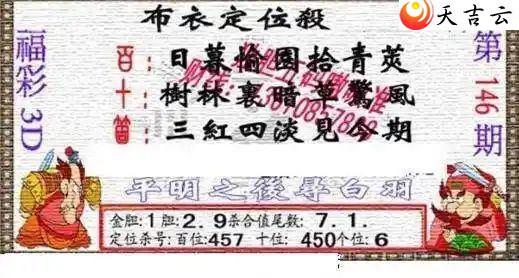 天吉云
布衣定位殺
福彩3D
第146期
百：日暮愉園拾青莢
十：樹林裏暗草驚風
個：三紅四淡見今期
平明之後尋白羽
金胆:1胆:2.9杀合值尾数:7.1.
定位杀号:百位:457 十位:450个位:6